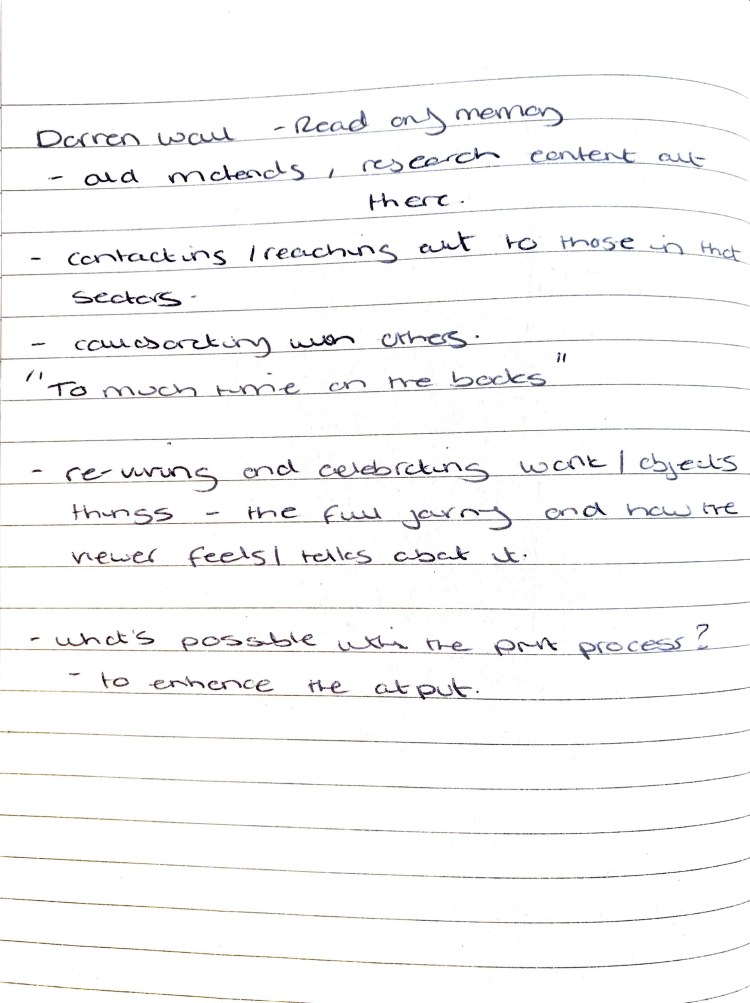 Darren Wall - Read only memory
- old materials, research content out
there.
- contacting / reaching out to those in that
sectors.
- collaborating with others.
"To much time on the books"
- re-viving and celebrating work / objects
things - the full jorny and how the
viewer feels / talks about it.
- what's possible within the print process?
- to enhance the output.